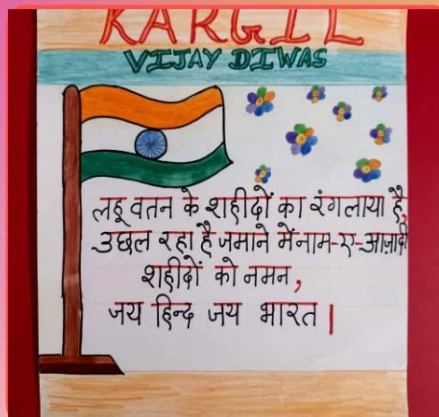 KARGIL
VIJAY DIWAS
लहू वतन के शहीदों का रंगलाया है,
उछल रहा है जमाने में नाम-ए-आज़ादी
शहीदों को नमन,
जय हिन्द जय भारत |